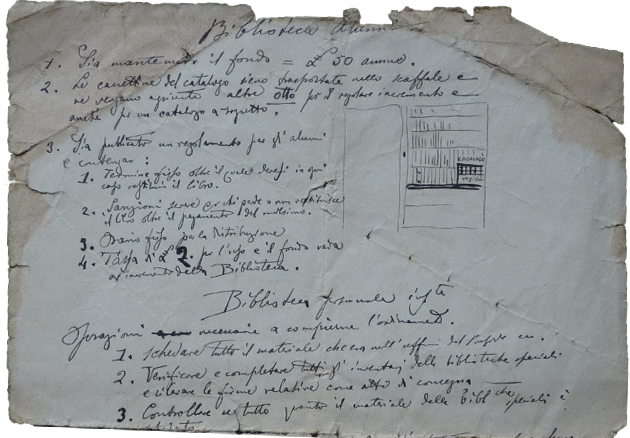 Biblioteca alunni
1. Sia mantenuto il fondo = £ 50 annue.
2. Le casettine del catalogo siano trasportate nello scaffale e
ne vengano aggiunte altre otto per il regolare incremento e
anche per un catalogo a soggetto.
3. Sia pubblicato un regolamento per gl'alunni
e contenga:
1. Termine fisso oltre il quale devesi in ogni
caso restituire il libro.
2. Sanzioni severe per chi perde o non restituisce
il libro oltre il pagamento del medesimo.
3. Orario fisso per la Distribuzione
4. Tassa di £ 2. per l'uso e il fondo vada
ad incremento della Biblioteca.
CATALOGO
Biblioteca personale
Operazioni necessarie a compierne l'ordinamento.
1. Schedare tutto il materiale che era nell'ufficio del
2. Verificare e completare tutti gl'inventarj delle biblioteche speciali
e rilevare le firme relative come atto di consegna
3. Controllare se tutto quanto il materiale delle Bibl.che speciali è